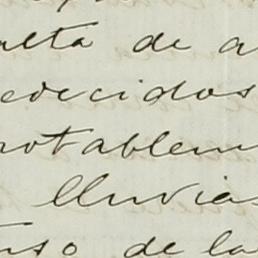 alta de a
edecidos
notablem
lluvias
uso de la